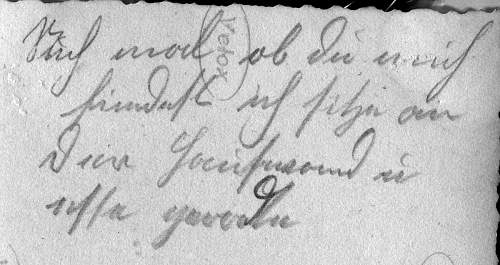 Such mal ob du mich
findest ich sitze an
der Hauswand u
esse gerade
Velox